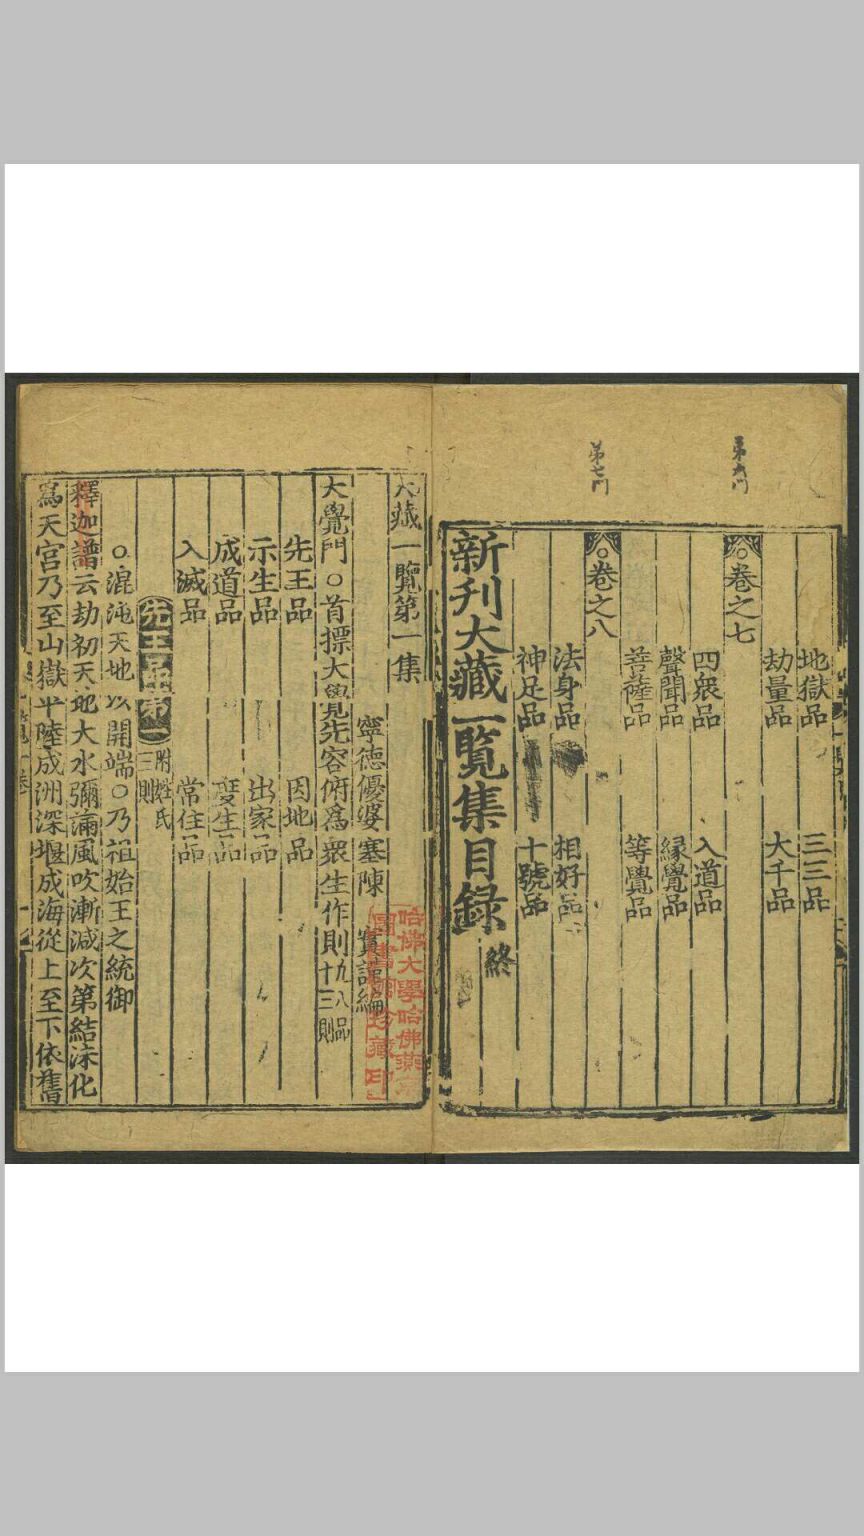 地獄品 三三品
劫量品 大千品
第六門
卷之七
四衆品 入道品
聲聞品 緣覺品
菩薩品 等覺品
第七門
卷之八
法身品 相好品
神足品 十號品
新刋大藏一覽集目録 終
大藏一覽第一集
寧德優婆塞陳 實謹編
大覺門○首標大覺先容俯爲衆生作則 八品 九十三則
先王品 因地品
示生品 出家品
成道品 度生品
入滅品 常住品
先王品第一 附姓氏 三則
○混沌天地以開端○乃祖始王之統御
釋迦譜云劫初天地大水彌滿風吹漸減次第結沫化
爲天宮乃至山嶽平陸成洲深堰成海從上至下依舊
哈佛大學哈佛燕京
圖書館珍藏印